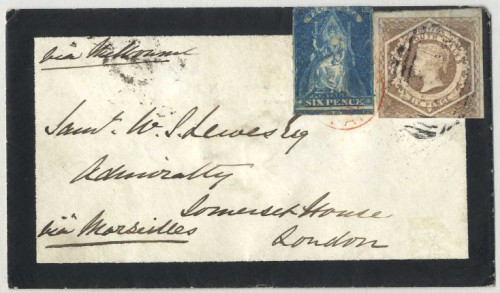 via Melbourne
SIX PENCE
Saml. W. S. Lewes Esq
Admiralty
Somerset House
via Marseilles
London